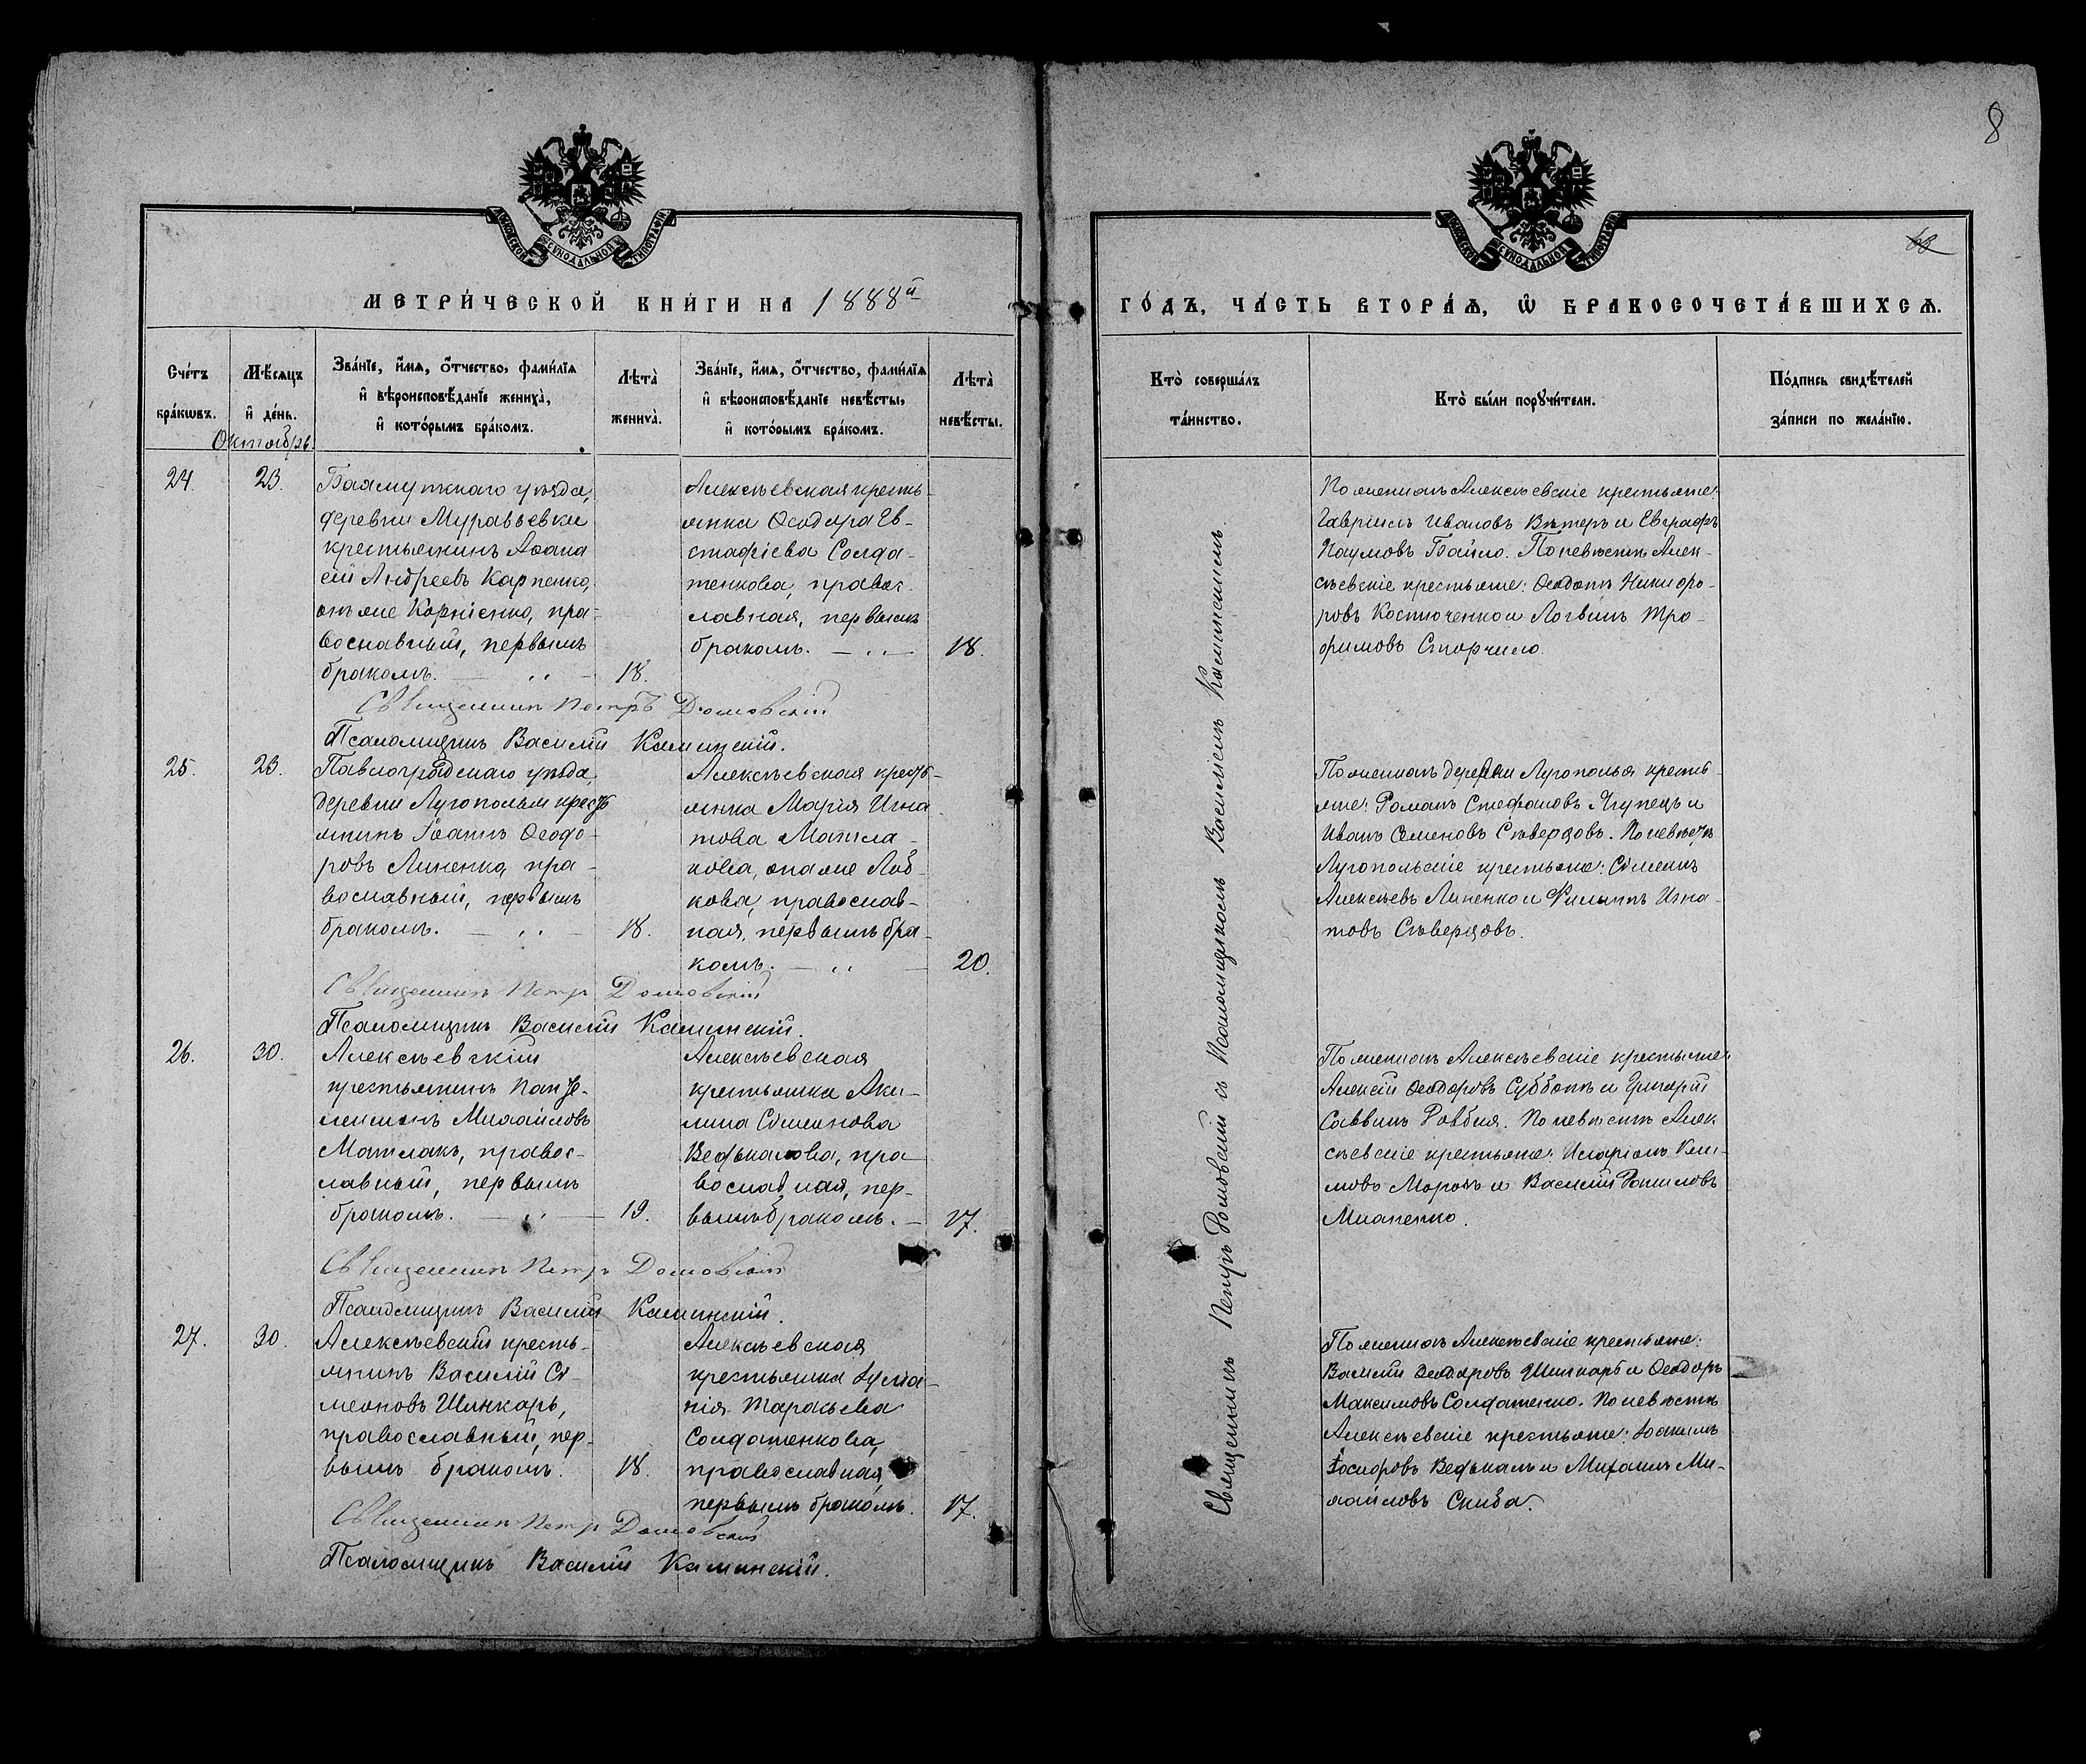 8
МЕТРИ́ЧЕСКОЙ КНИ́ГИ НА 1888й
ГО́ДЪ, ЧА́СТЬ ВТОРА́Ѧ, Ѿ БРАКОСОЧЕТА́ВШИХСѦ.
Сче́тъ бра́кѡвъ.
Мѣ́сѧцъ и де́нь.
Зва́нїе, и҆́мѧ, о҆́тчество, фами́лїѧ
и҆ вѣроисповѣ́данїе жениха̀,
и҆ кото́рымъ бра́комъ.
Лѣта̀ жениха̀.
Зва́нїе, и҆́мѧ, о҆́тчество, фами́лїѧ
и҆ вѣроисповѣ́данїе невѣ́сты,
и҆ кото́рымъ бра́комъ.
Лѣта̀ невѣ́сты.
Кто̀ соверша́лъ
та́инство.
Кто̀ бы́ли порꙋчи́тели.
По́дпись свидѣ́телей
за́писи по жела́нїю.
Октябрь.
24.
23.
Бахмутскаго уѣзда,
деревни Муравьевки
крестьянинъ Аѳана
сій Андреевъ Карпенко,
онъ же Корніенко, пра-
вославный, первымъ
бракомъ.
18.
Алексѣевская кресть-
янка Ѳеодора Ев-
стафіева Солда-
тенкова, правос-
лавная, первымъ
бракомъ.
18.
По женихѣ Алексѣевскіе крестьяне:
Гавріилъ Ивановъ Вѣтеръ и Евграфъ
Наумовъ Байло. По невѣстѣ Алек-
сѣевскіе крестьяне: Ѳеодотъ Никифо-
ровъ Костюченко и Логвинъ Тро-
фимовъ Сторчило.
Священникъ Петръ Домовскій
Псаломщикъ Василій Каминскій.
25.
23.
Павлоградскаго уѣзда,
деревни Лугополья кресть
янинъ Іоаннъ Ѳеодо-
ровъ Линенко, пра-
вославный, первымъ
бракомъ.
18.
Алексѣевская кресть-
янка Марія Игна
това Матла-
кова, она же Люб-
кова, православ-
ная, первымъ бра-
комъ.
20.
По женихѣ деревни Лугополья кресть-
яне: Романъ Стефановъ Ягупецъ и
Иванъ Семеновъ Сѣверцовъ. По невѣстѣ
Лугопольскіе крестьяне: Сѵмеонъ
Алексѣевъ Линенко и Филиппъ Игна-
товъ Сѣверцовъ.
Священникъ Петръ Домовскій
Псаломщикъ Василій Каминскій.
26.
30.
Алексѣевскій
крестьянинъ Панте-
леимонъ Михайловъ
Матлакъ, правос-
лавный, первымъ
бракомъ.
19.
Алексѣевская
крестьянка Аки-
лина Сѵмеонова
Ведькалова, пра
вославная, пер-
вымъ бракомъ.
17.
По женихѣ Алексѣевскіе крестьяне:
Алексій Ѳеодоровъ Суббота и Григорій
Саввинъ Ровбия. По невѣстѣ Алек-
сѣевскіе крестьяне: Иларіонъ Кли-
мовъ Морозъ и Василій Даниловъ
Священникъ Петръ Домовскій
Псаломщикъ Василій Каминскій.
27.
30.
Алексѣевскій кресть-
янинъ Василій Сѵ-
меоновъ Шинкарь,
православный, пер-
вымъ бракомъ.
18.
Алексѣевская
крестьянка
нія Тарасьева
Солдатенкова,
православная,
первымъ бракомъ.
17.
По женихѣ Алексѣевскіе крестьяне:
Василій Ѳеодоровъ Шинкарь и Ѳеодоръ
Максимовъ Солдатенко. По невѣстѣ
Алексѣевскіе крестьяне: Іоакимъ
Іосифовъ Ведькалъ и Михаилъ Ми-
хайловъ Скиба.
Священникъ Петръ Домовскій
Псаломщикъ Василій Каминскій.
Священникъ Петръ Домовскій съ Псаломщикомъ Василіемъ Каминскимъ.